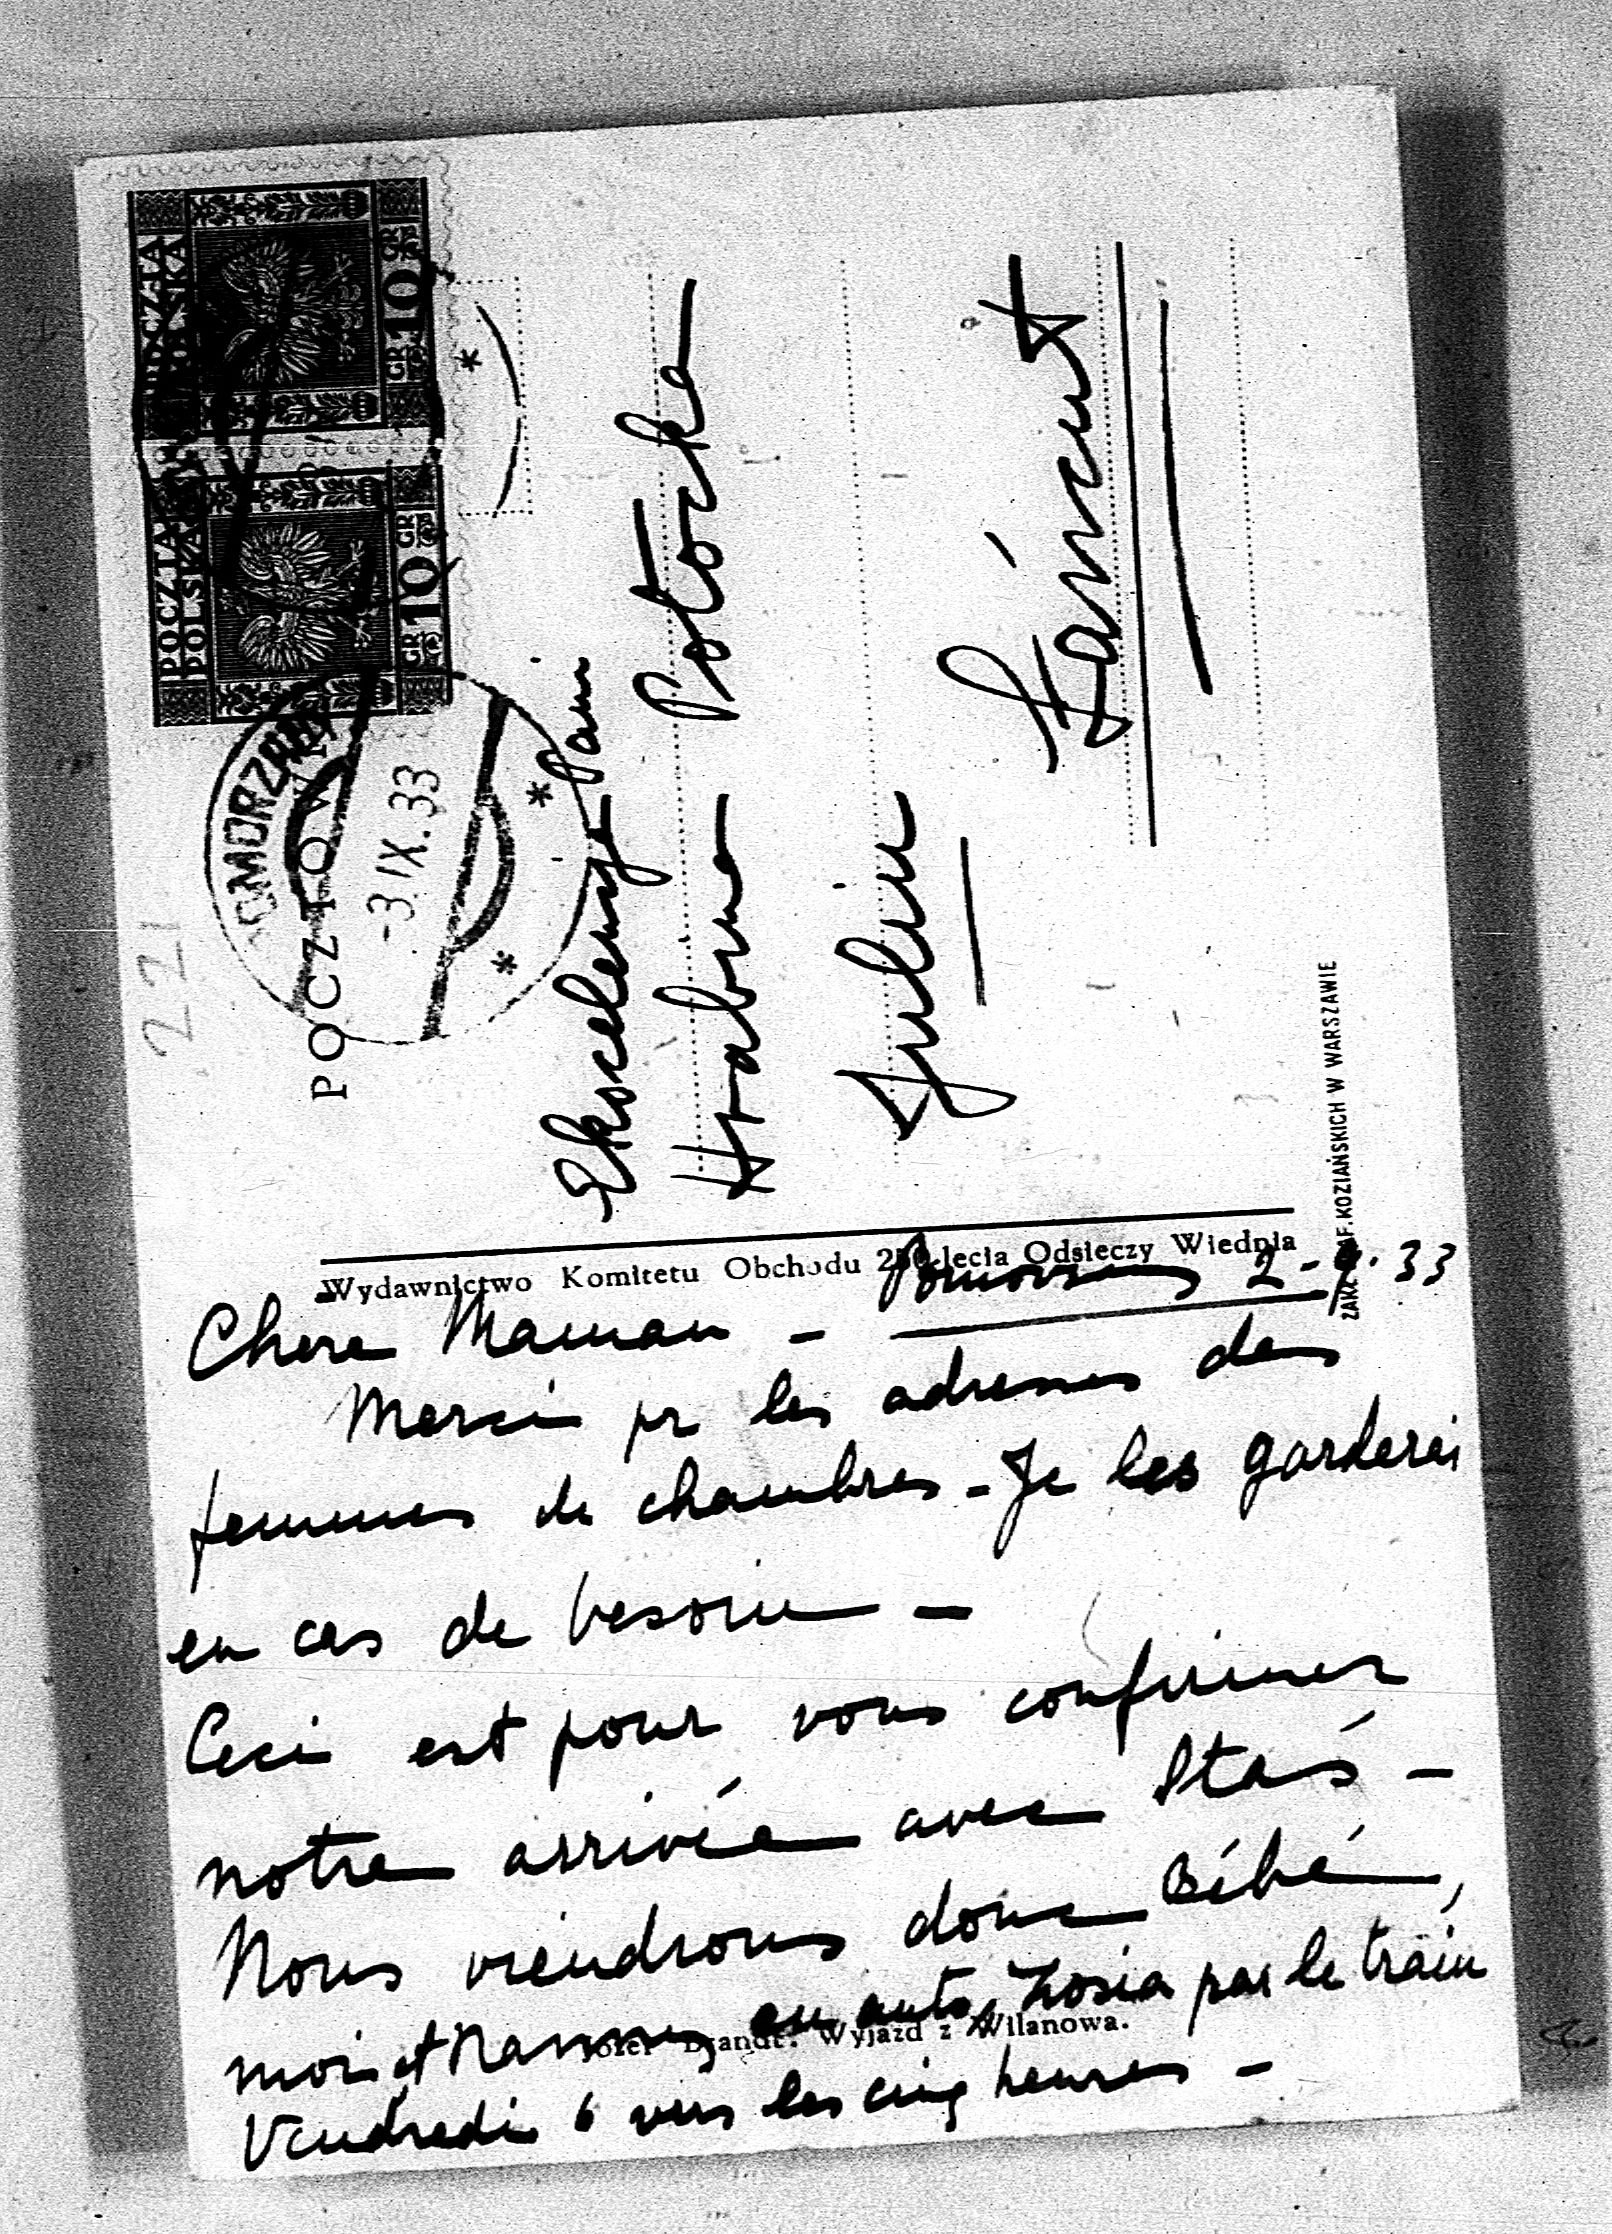 POCZTA
POLSKA
GR 10 GR
POCZTA
POLSKA
GR 10 GR
POMORZANY
-3.IX.33
221
Ekscelencja Pani
Hrabina Potocka
Julin
Łańcut
Wydawnictwo Komitetu Obchodu 250-lecia Odsieczy Wiednia
F. KOZIAŃSKICH W WARSZAWIE
Pomorzany 2-9-33
Chere Maman -
Merci pr les adresses des
femmes de chambres - Je les garderai
en cas de besoin -
Ceci est pour vous confirmer
notre arrivée avec Staś -
Nous viendrons donc Bébé,
moi et Nanny en auto, Zosia par le train
Vendredi 6 vers les cinq heures -
Józef Brandt. Wyjazd z Wilanowa.